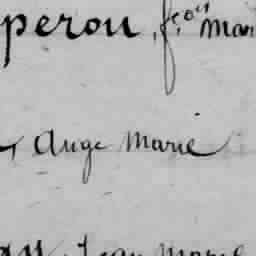 perou, fçois Mari
Ange Marie
Jean Marie